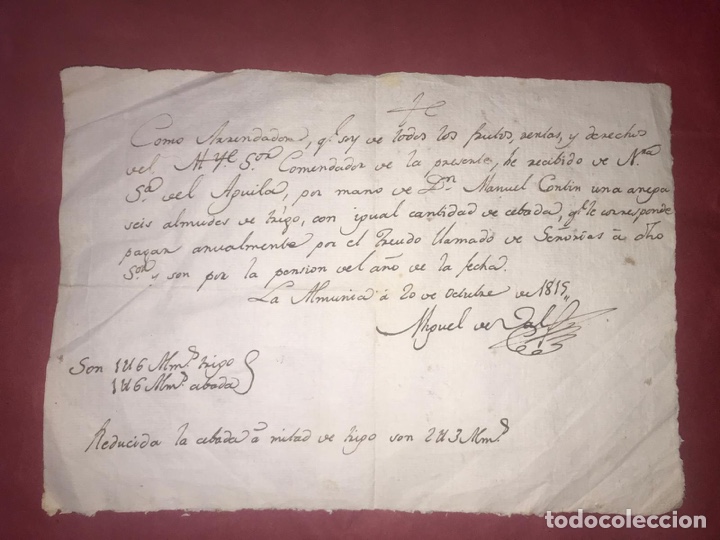 Como Arrendador, q.e soy de todos los frutos, rentas, y derechos
del Il.e S.or Comendador de la presente, he recibido de N.ra
S.a del Aguila, por mano de D.n Manuel Contin una anega
seis almudes de trigo, con igual cantidad de cebada, q.e le corresponde
pagar anualmente por el Treudo llamado de Señorias á dho
S.or y son por la pension del año de la fecha.
La Almunia á 20 de Octubre de 1815,,
Miguel de
Son 1 U 6 Alm.s trigo
1 U 6 Alm.s cebada
Reducida la cebada á mitad de trigo son 2 U 3 Alm.s
todocoleccion
todocoleccion.net